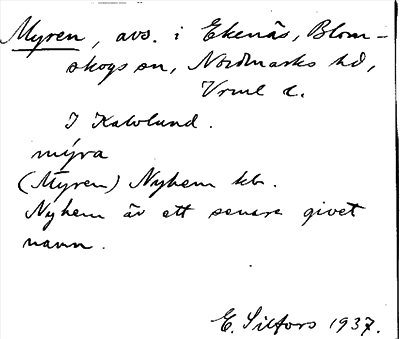 Myren, avs. i Ekenäs, Blom-
skogs sn, Nordmarks hd,
Vrml l.
I Kalvlund.
mýra
(Myren) Nyhem kb.
Nyhem är ett senare givet
navn.
E. Silfors 1937.